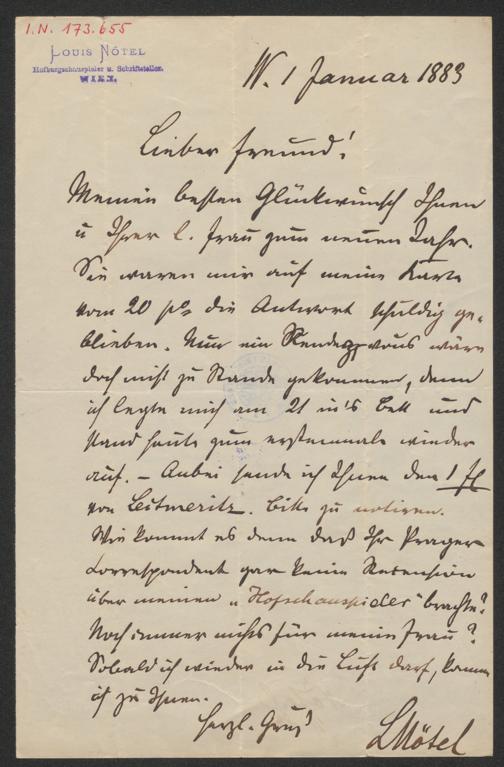 I.N. 173.655
LOUIS NÖTEL
Hofburgschauspieler u. Schriftsteller.
WIEN.
W. 1 Januar 1883
Lieber Freund!
Meinen besten Glückwunsch Ihnen
u Ihrer l. Frau zum neuen Jahr.
Sie waren mir auf meine Karte
vom 20 die Antwort schuldig ge-
blieben. Nur ein Rendezvous wäre
doch nicht zu Stande gekommen, denn
ich legte mich am 21 in's Bett und
stand heute zum erstenmale wieder
auf. – Anbei sende ich Ihnen den 1 fl
von Leitmeritz. Bitte zu notiren.
Wie kommt es denn daß Ihr Prager
Correspondent gar keine Recension
über meinen „Hofschauspieler" brachte?
Noch immer nichts für meine Frau?
Sobald ich wieder in die Luft darf, komme
ich zu Ihnen.
Herzl. Gruß
LNötel